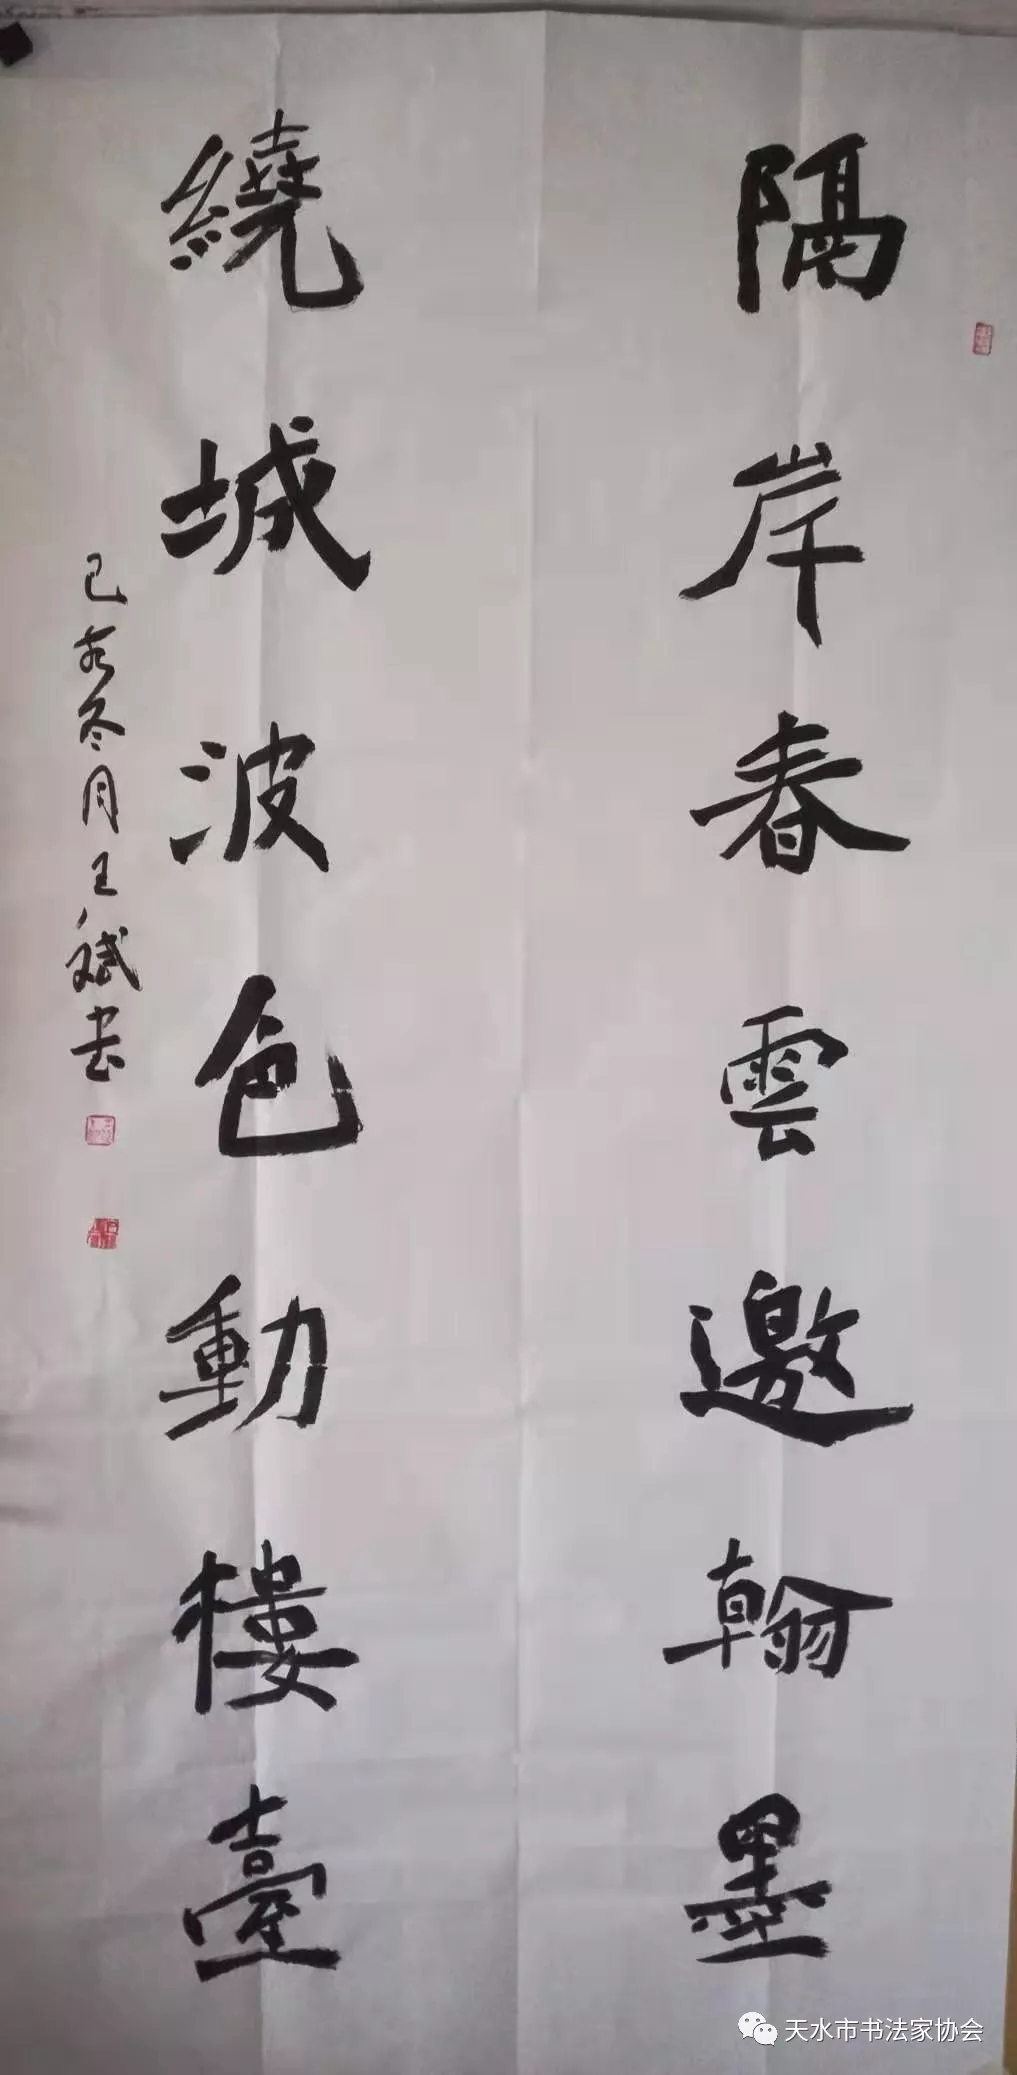 隔岸春雲邀翰墨
繞城波色動樓臺
己亥冬月王斌书
天水市书法家协会